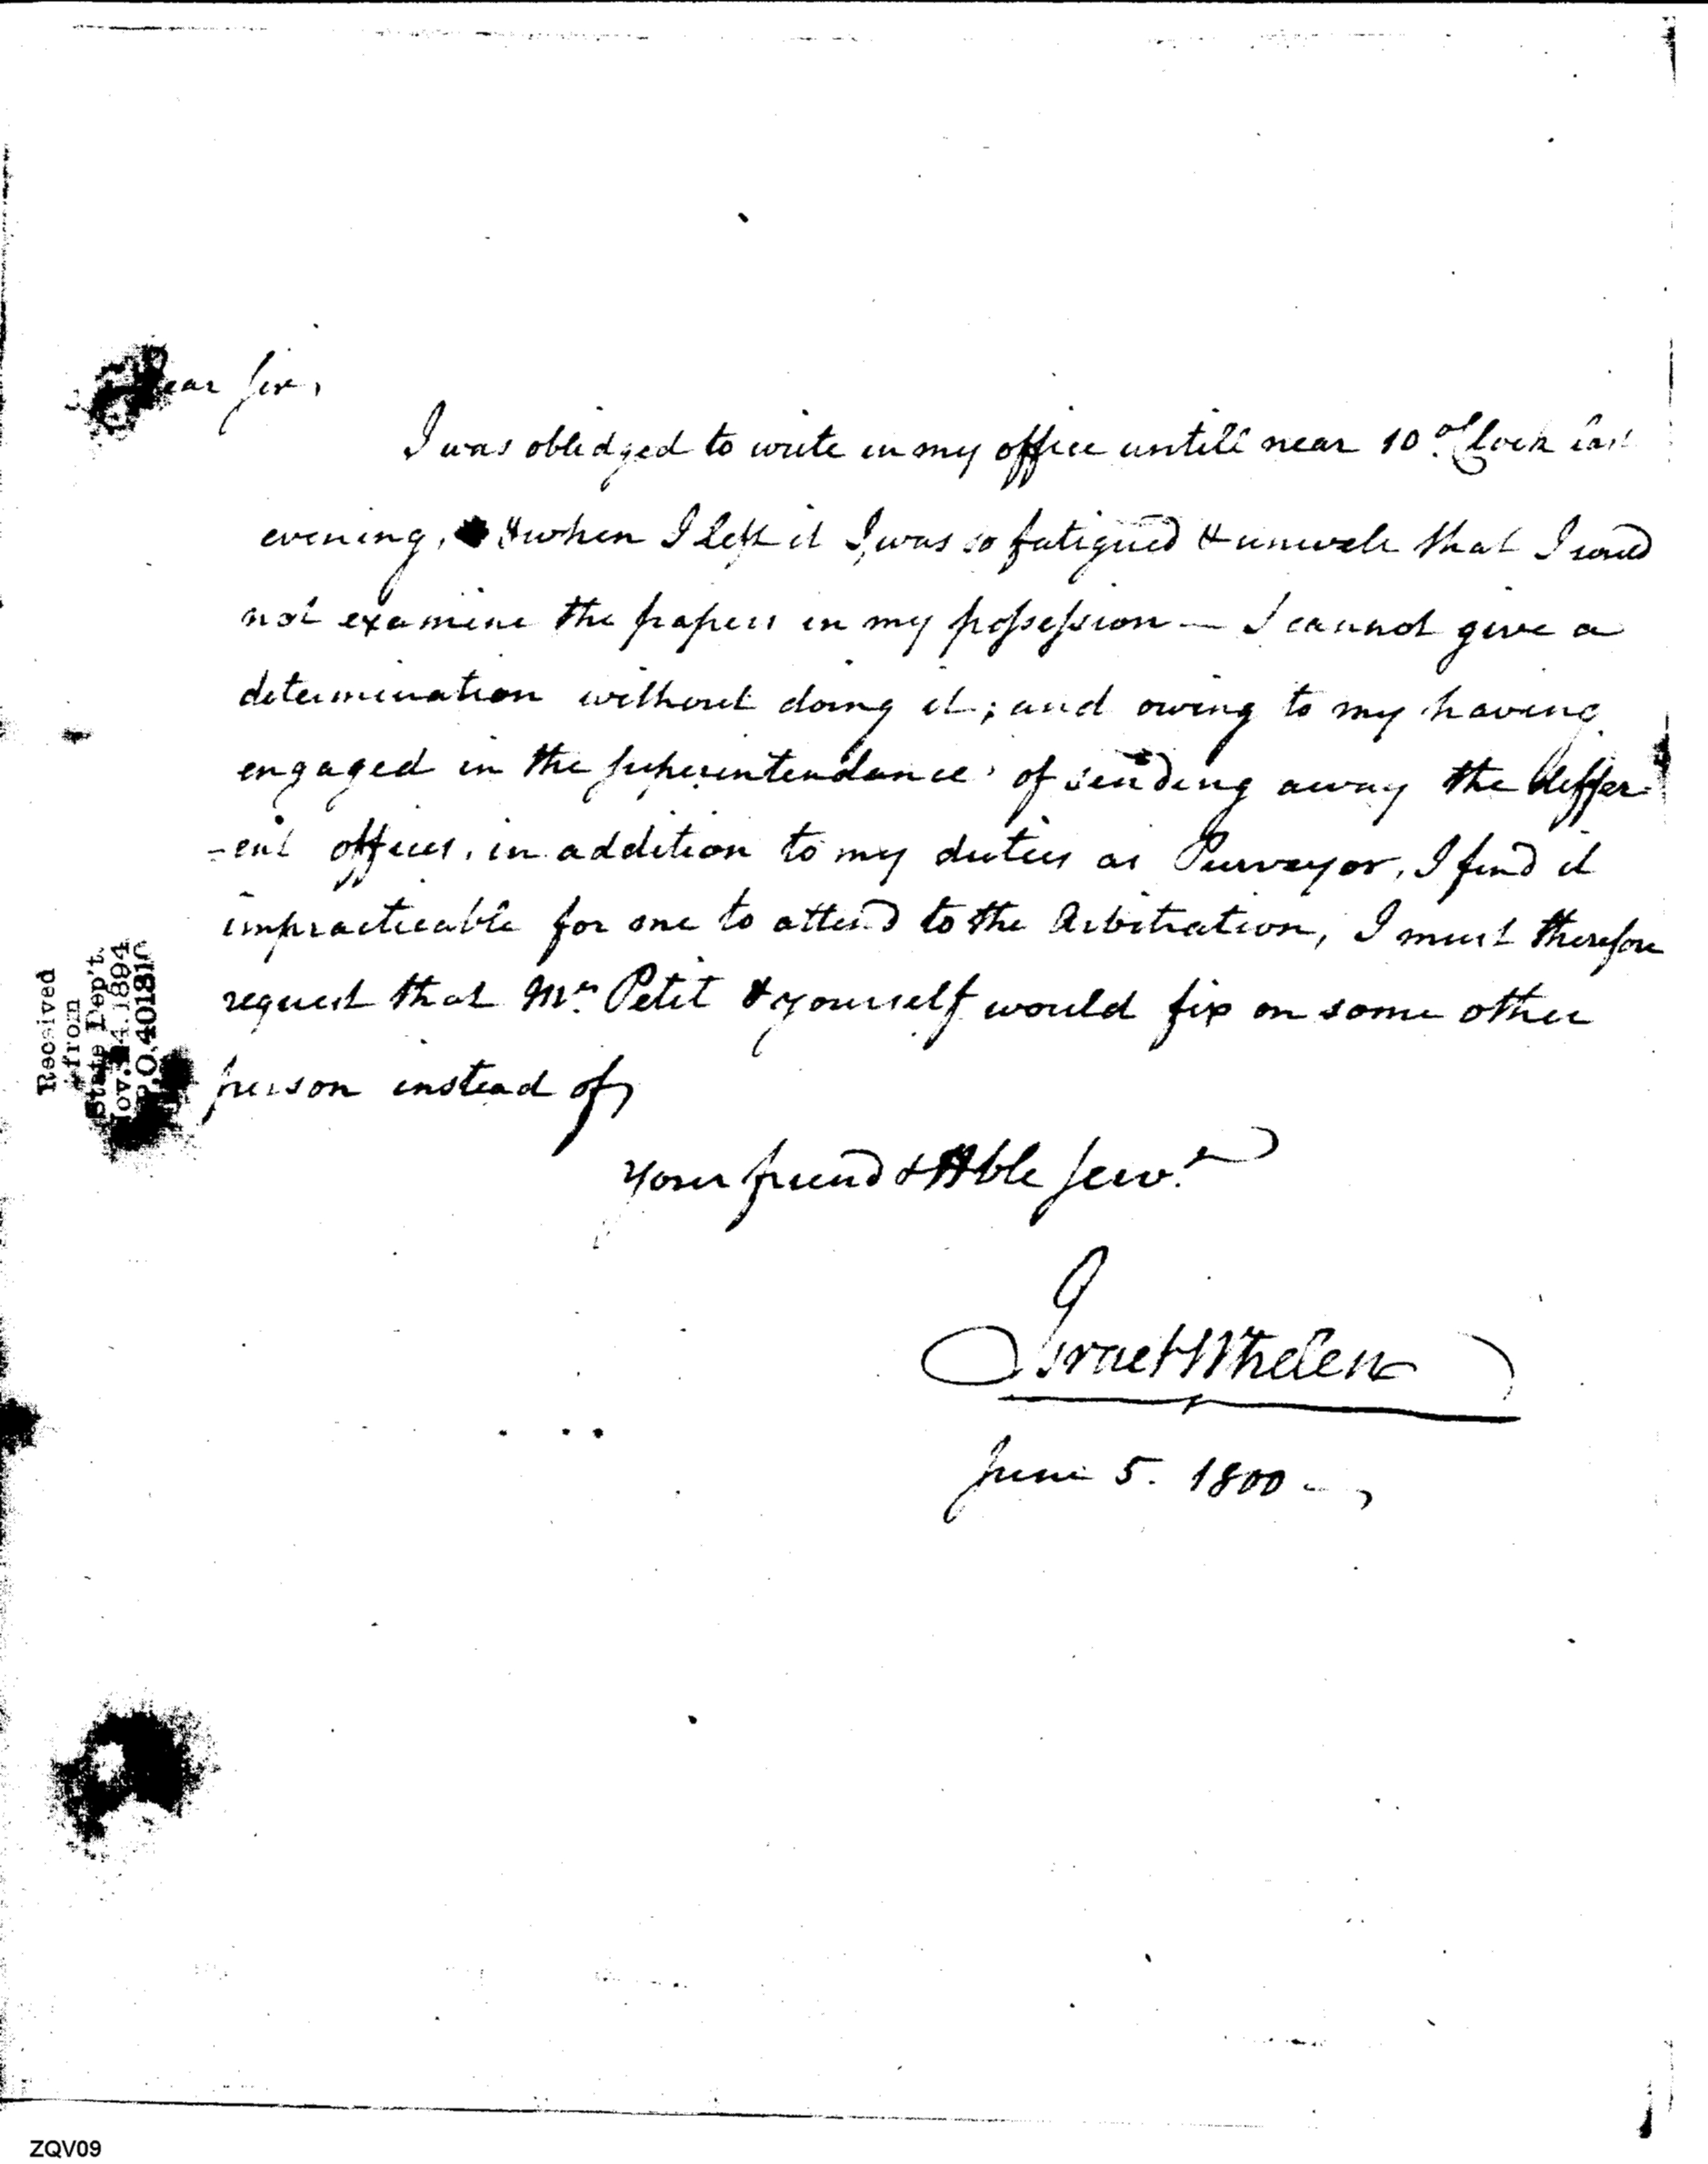 Dear Sir,
I was obledged to write in my office untill near 10 oClock last
evening, & when I left it I was so fatigued & unwell that I could
not examine the papers in my possession — I cannot give a
determination without doing it; and owing to my having
engaged in the superintendance of sending away the differ-
-ent offices, in addition to my duties as Purveyor, I find it
impracticable for me to attend to the Arbitration, I must therefore
request that Mr. Petit & yourself would fix on some other
person instead of
Your friend & Hble Servt.
Israel Whelen
June 5. 1800 -
Received
from
State Dep't.
Nov. 4. 1894
R.O. 401810
ZQV09